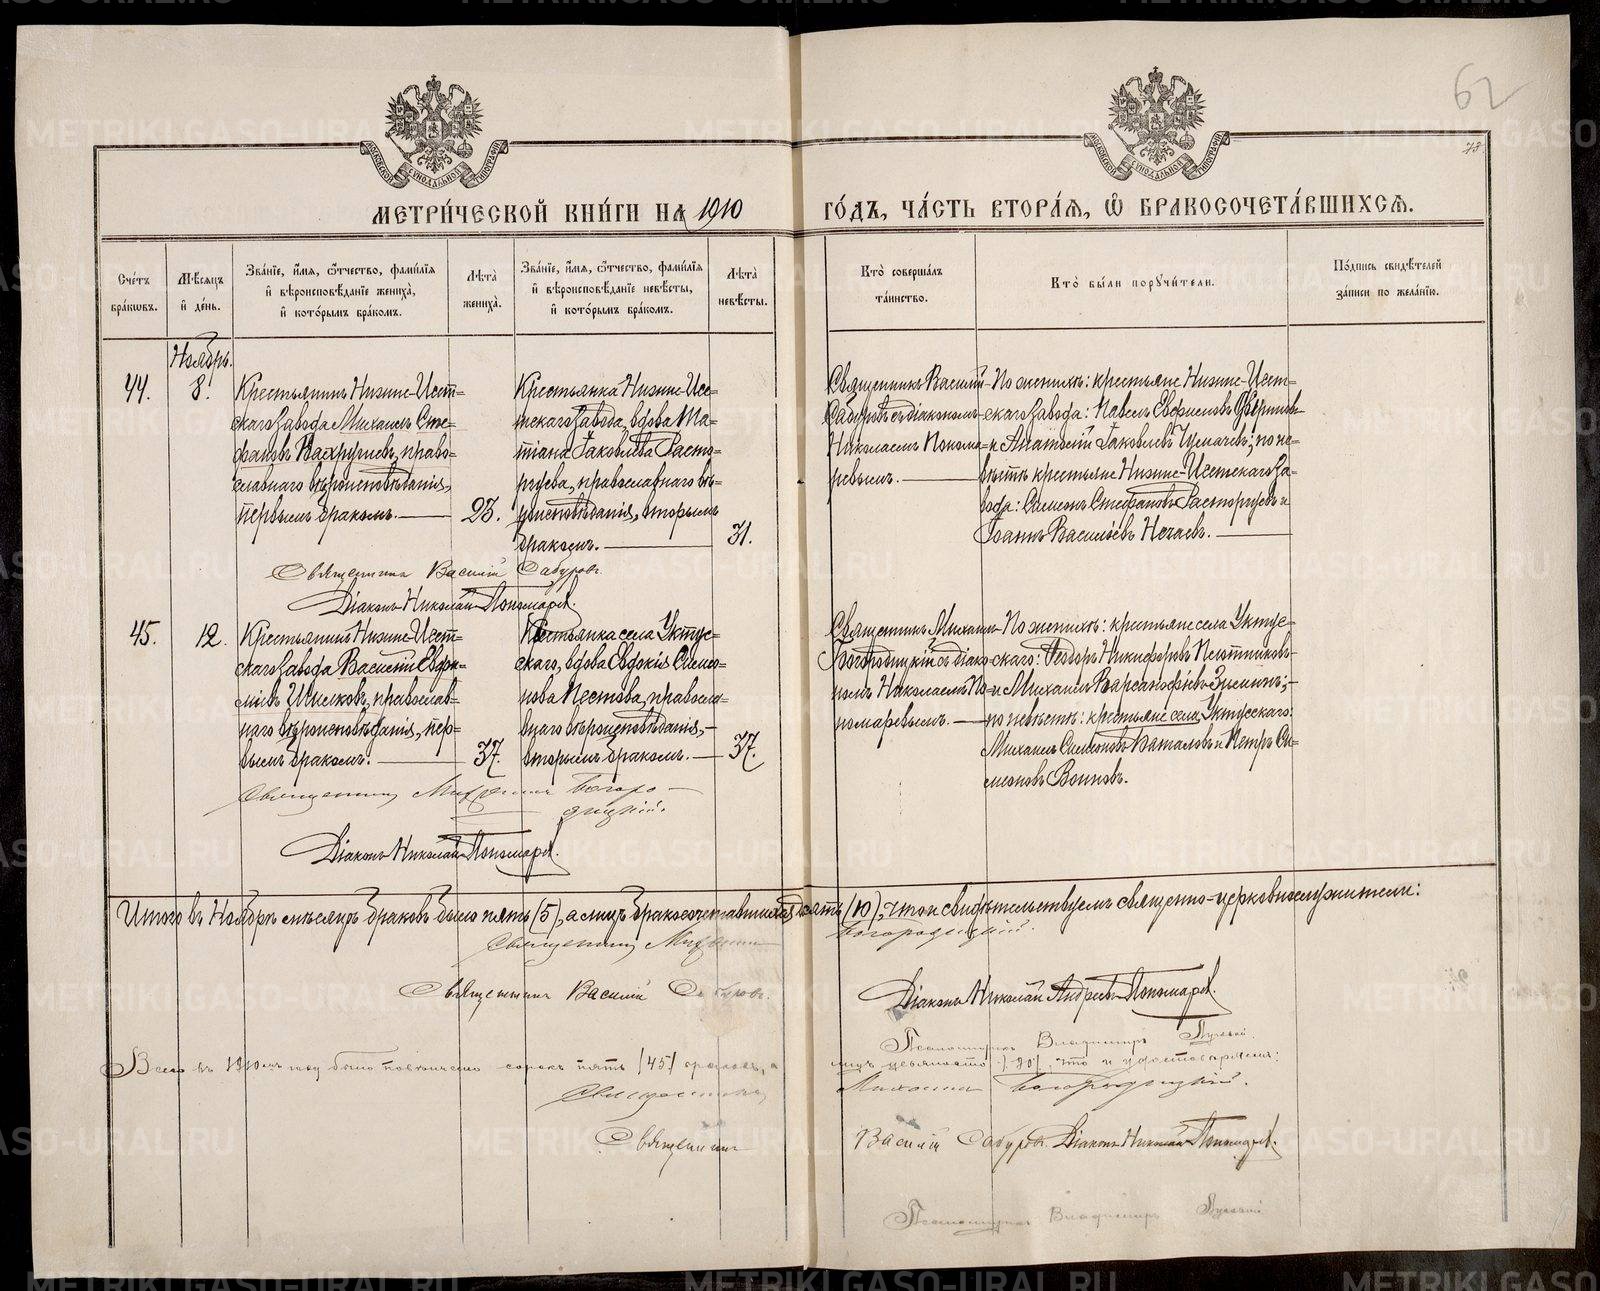 62
78.
МЕТРИ́ЧЕСКОЙ КНИ́ГИ НА 1910 ГО́ДЪ, ЧА́СТЬ ВТОРА́Я, Ѡ БРАКОСОЧЕТА́ВШИХСЯ.
Сче́тъ
бра́кѡвъ.
Мѣ́сяцъ
и҆ де́нь.
Зва́нїе, и҆́мя, ѻ҆́тчество, фами́лїя
и҆ вѣроисповѣ́данїе жениха̀,
и҆ кото́рымъ бра́комъ.
Лѣ́та
жениха̀.
Зва́нїе, и҆́мя, ѻ҆́тчество, фами́лїя
и҆ вѣроисповѣ́данїе невѣ́сты,
и҆ кото́рымъ бра́комъ.
Лѣ́та
невѣ́сты.
Кто̀ соверша́лъ
та́инство.
Кто̀ бы́ли поручи́тели.
По́дпись свидѣ́телей
за́писи по жела́нїю.
Ноябрь.
44.
8.
Крестьянинъ Нижне-Исет-
скаго завода Михаилъ Сте-
фановъ Вахрушевъ, право-
славнаго вѣроисповѣданія,
первымъ бракомъ.
23.
Крестьянка Нижне-Исе-
тскаго завода, вдова Та-
тіана Іаковлева Расто-
ргуева, православнаго вѣ-
роисповѣданія, вторымъ
бракомъ.
31.
Священникъ Василій
Сабуровъ съ діакономъ
Николаемъ Понома-
ревымъ.
По женихѣ: крестьяне Нижне-Исет-
скаго завода: Павелъ Евфимовъ
и Анатолій Іаковлевъ по не-
вѣстѣ крестьяне Нижне-Исетскаго за-
вода: Симеонъ Стефановъ Расторгуевъ и
Іоаннъ Васильевъ Нечаевъ.
Священникъ Василій Сабуровъ.
Діаконъ Николай Пономаревъ.
45.
12.
Крестьянинъ Нижне-Исет-
скаго завода Василій Евфи-
міевъ православ-
наго вѣроисповѣданія, пер-
вымъ бракомъ.
37.
Крестьянка села Уктус-
скаго, вдова Евдокія Симео-
нова Пестова, правосла-
внаго вѣроисповѣданія,
вторымъ бракомъ.
37.
Священникъ Михаилъ
Богородицкій съ діако-
номъ Николаемъ По-
номаревымъ.
По женихѣ: крестьяне села Уктус-
скаго: Ѳеодоръ Никифоровъ Плотниковъ
и Михаилъ Варсанофіевъ Зыминъ;
по невѣстѣ: крестьяне села Уктусскаго:
Михаилъ Симеоновъ Паталовъ и Петръ Си-
меоновъ Воиновъ.
Священникъ Михаилъ Богоро-
дицкій.
Діаконъ Николай Пономаревъ.
Итого въ Ноябрѣ мѣсяцѣ браковъ было пять (5), а лицъ бракосочетавшихся десять (10), что и свидѣтельствуемъ священно-церковнослужители:
Священникъ Михаилъ Богородицкій.
Священникъ Василій Сабуровъ.
Діаконъ Николай Андреевъ Пономаревъ.
Псаломщикъ Владимиръ
Всего въ 1910мъ году было повѣнчано сорокъ пять /45/ браковъ, а лицъ девяносто /90/, что и удостовѣряемъ:
Священникъ Михаилъ Богородицкій.
Священникъ Василій Сабуровъ. Діаконъ Николай Пономаревъ.
Псаломщикъ Владимиръ
METRIKI.GASO-URAL.RU